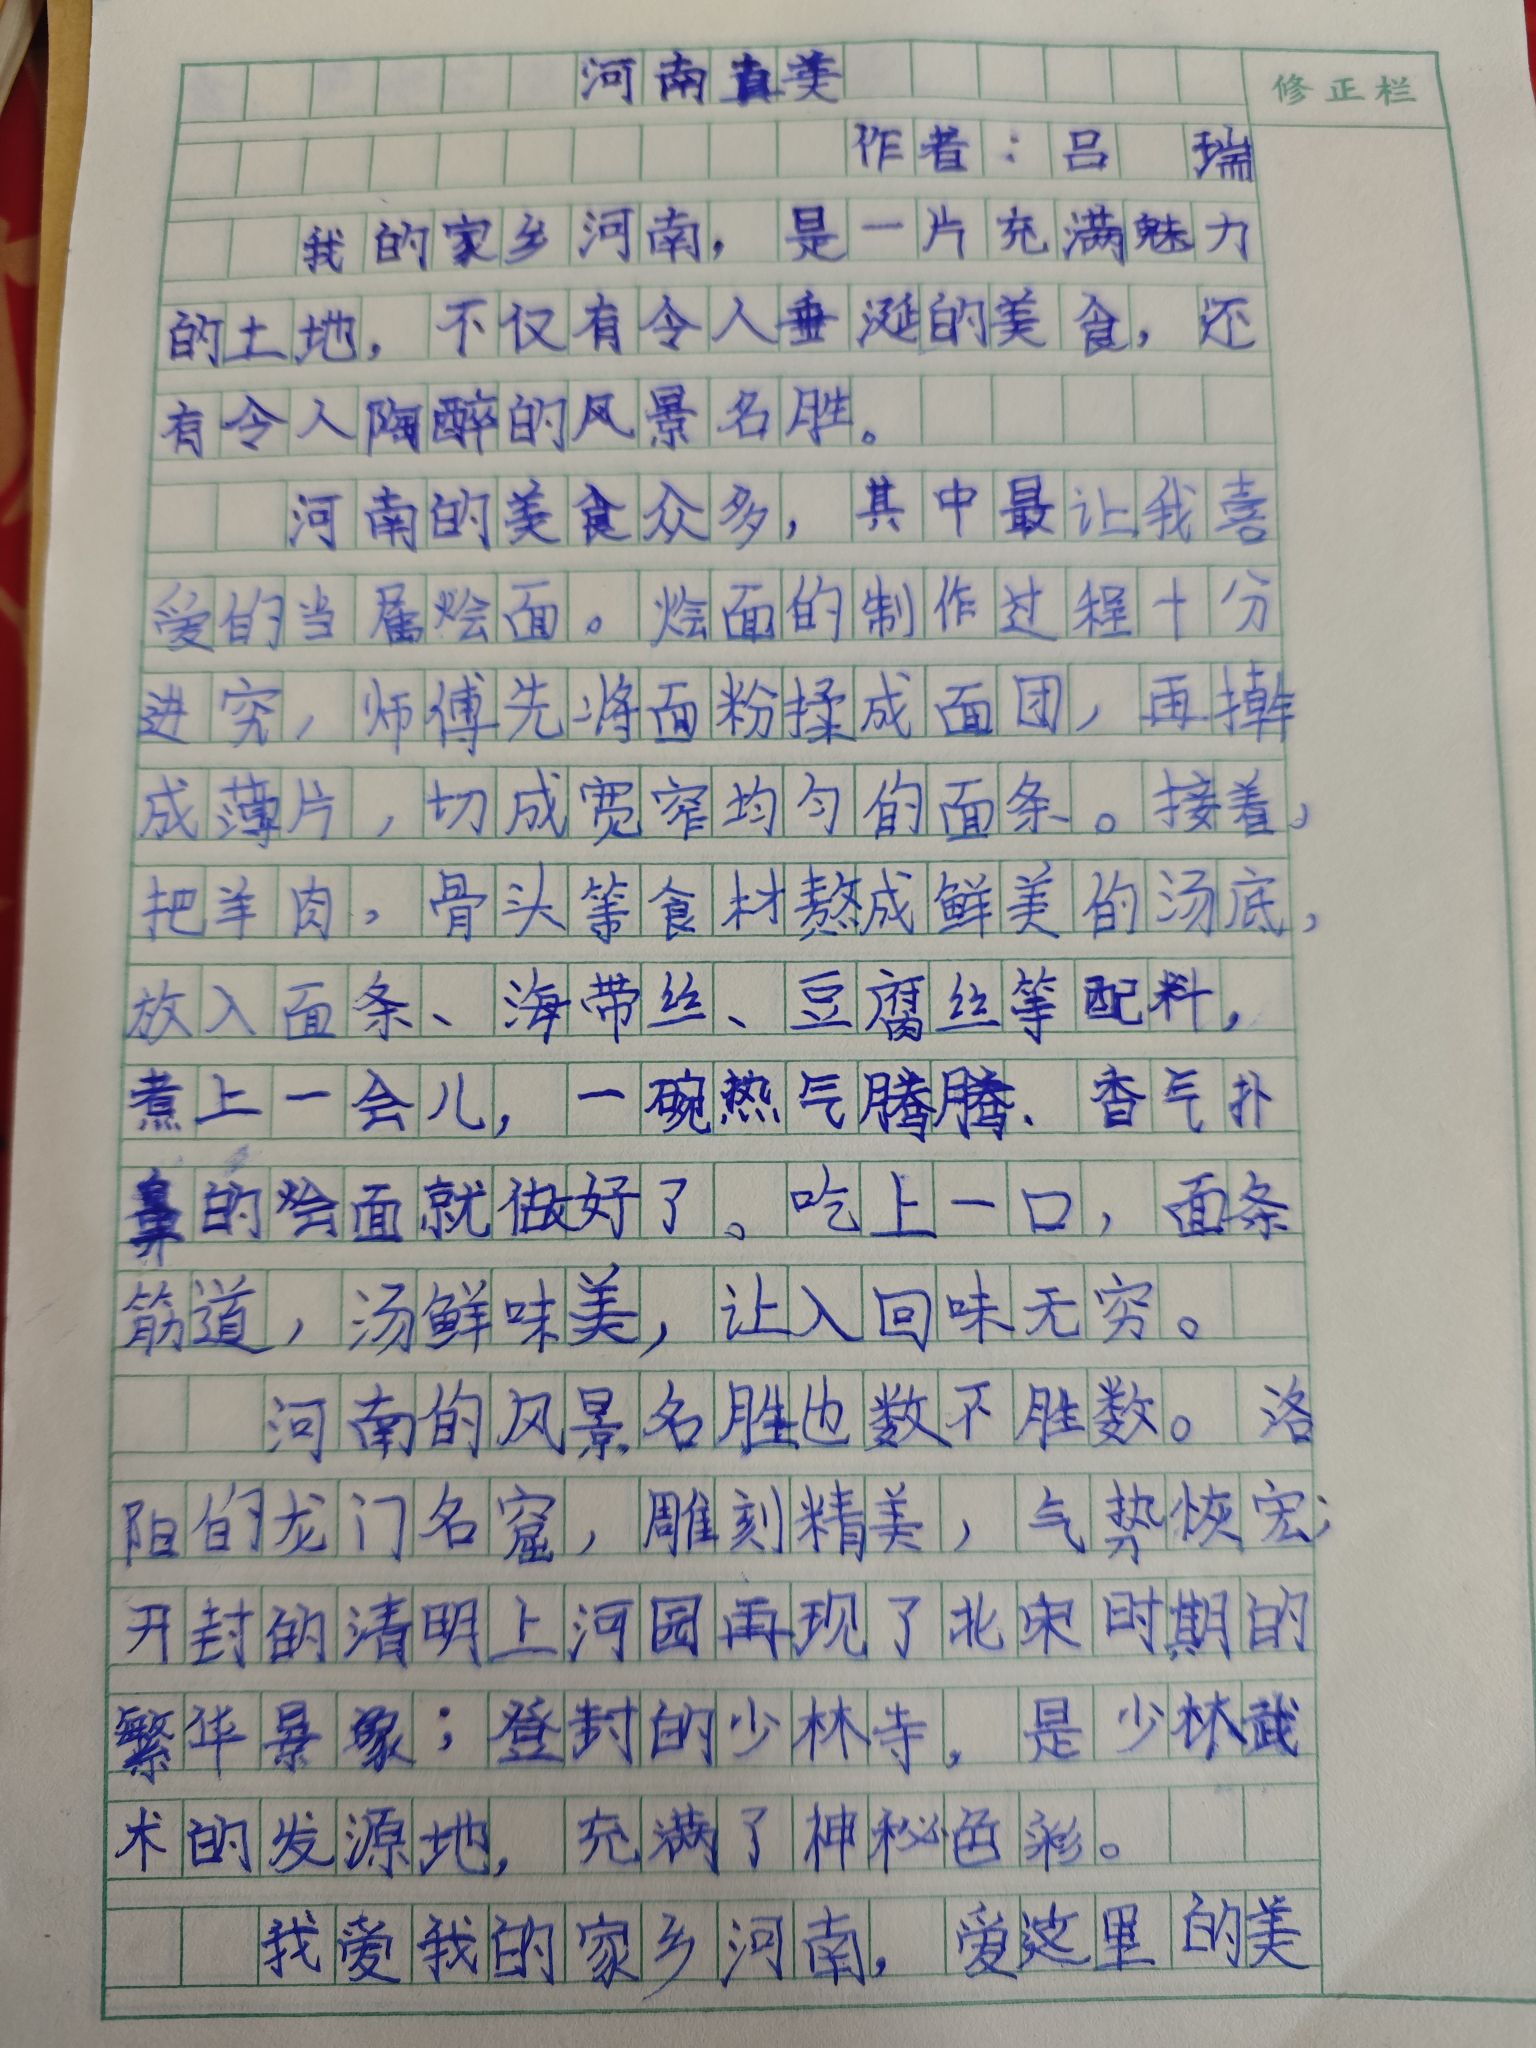 河南真美
修正栏
作者：吕 瑞
我的家乡河南，是一片充满魅力
的土地，不仅有令人垂涎的美食，还
有令人陶醉的风景名胜。
河南的美食众多，其中最让我喜
爱的当属烩面。烩面的制作过程十分
进究，师傅先将面粉揉成面团，再擀
成薄片，切成宽窄均匀的面条。接着，
把羊肉，骨头等食材熬成鲜美的汤底，
放入面条、海带丝、豆腐丝等配料，
煮上一会儿，一碗热气腾腾、香气扑
鼻的烩面就做好了。吃上一口，面条
筋道，汤鲜味美，让人回味无穷。
河南的风景名胜也数不胜数。洛
阳的龙门名窟，雕刻精美，气势恢宏；
开封的清明上河园再现了北宋时期的
繁华景象；登封的少林寺，是少林武
术的发源地，充满了神秘色彩。
我爱我的家乡河南，爱这里的美